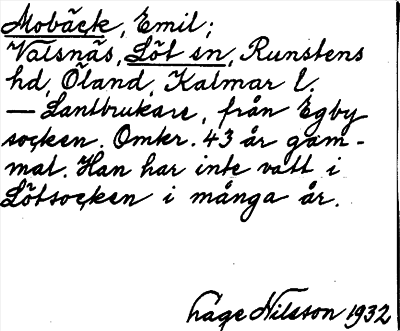 Mobäck, Emil;
Valsnäs, Löt sn, Runstens
hd, Öland, Kalmar l.
— Lantbrukare, från Egby
socken. Omkr. 43 år gam-
mal. Han har inte vatt i
Lötsocken i många år.
Låge Nilsson 1932